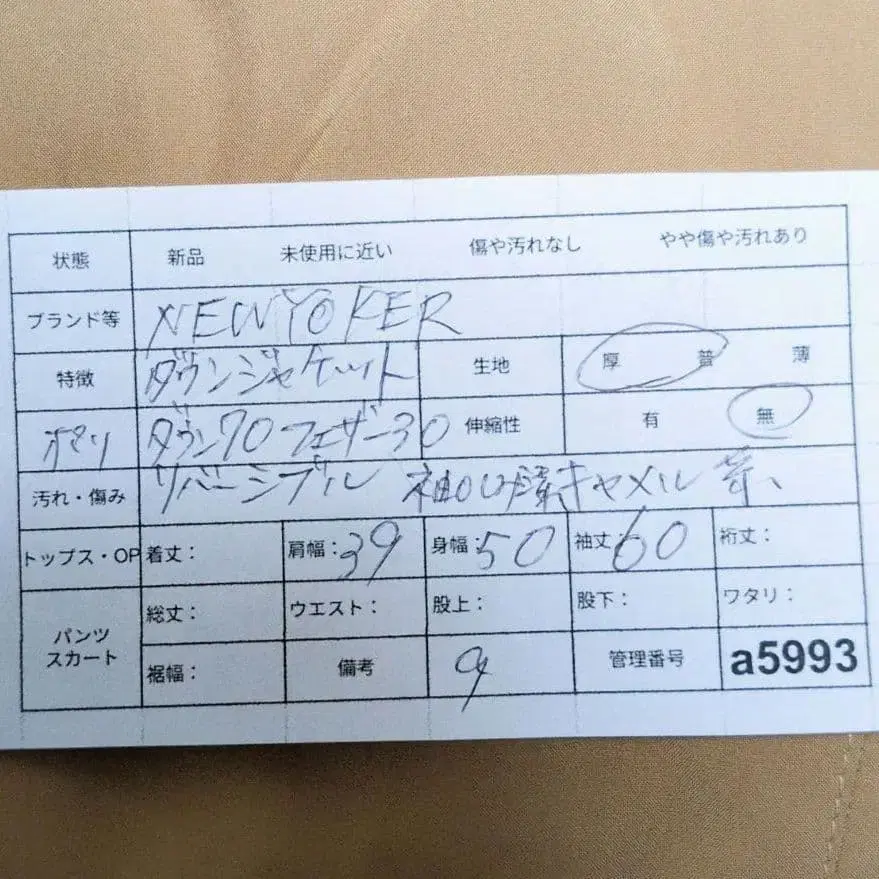 状態 新品 未使用に近い 傷や汚れなし やや傷や汚れあり
ブランド等 NEWYOKER
特徴 ダウンジャケット 生地 厚 普 薄
ダウン70フェザー30 伸縮性 有 無
汚れ・傷み リバーシブル 袖口 キャメル
トップス・OP 着丈: 肩幅:39 身幅:50 袖丈:60 裄丈:
パンツ スカート 総丈: ウエスト: 股上: 股下: ワタリ:
裾幅: 備考 管理番号 a5993